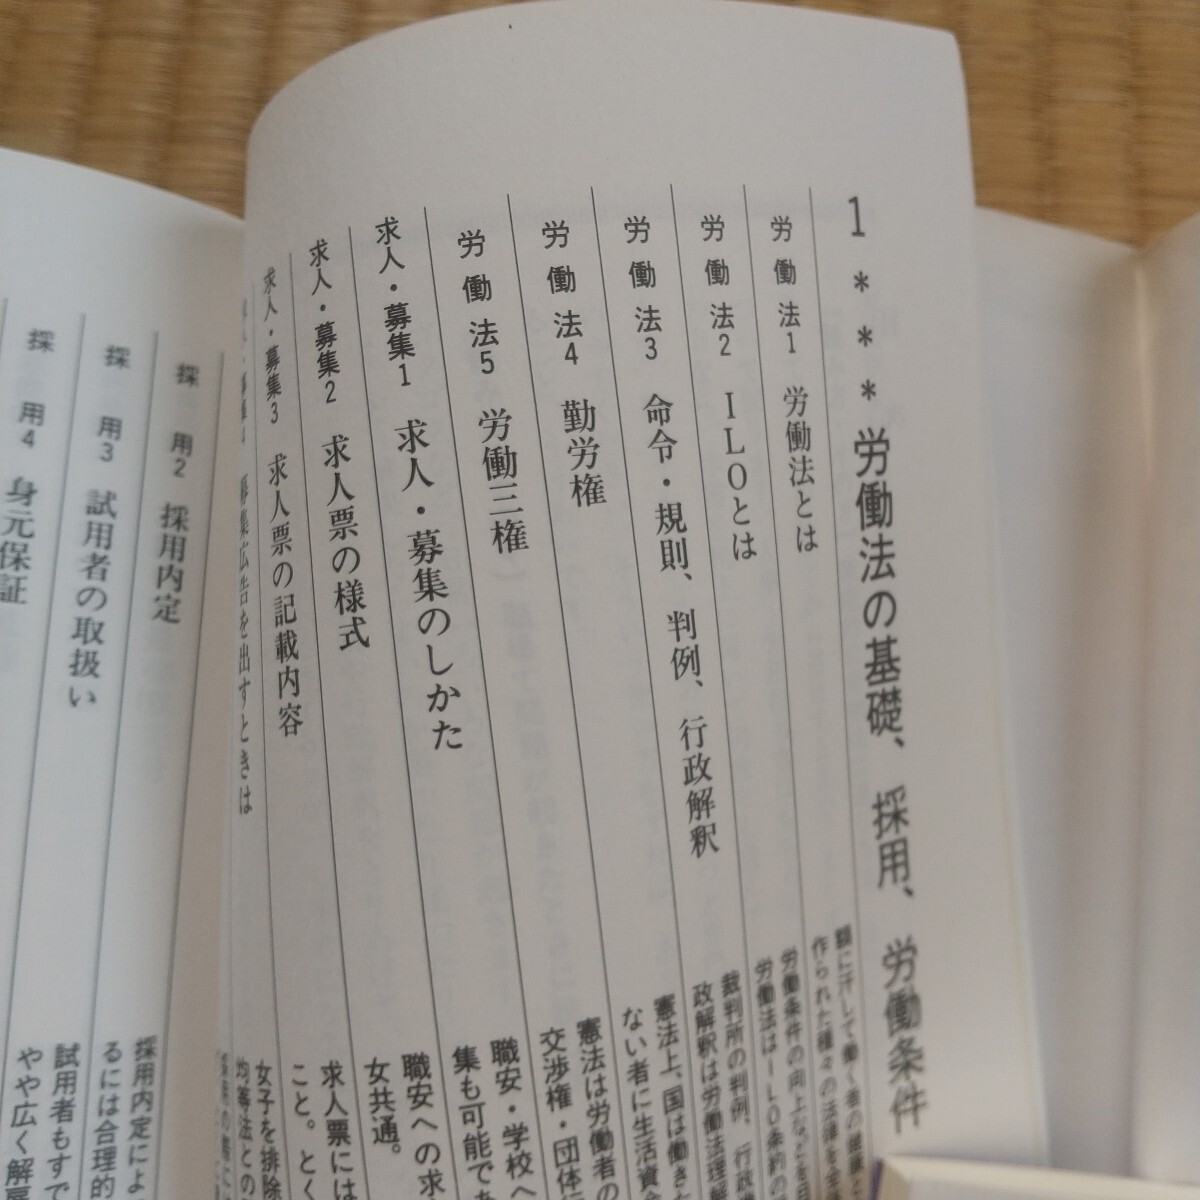 1＊＊＊労働法の基礎、採用、労働条件
労働法1 労働法とは
額に汗して働く者の
作られた種々の法律を
労働法2 ILOとは
労働条件の向上などを
労働法はILO条約の
労働法3 命令・規則、判例、行政解釈
裁判所の判例、行政
政解釈は労働法理解
労働法4 勤労権
憲法上、国は働き
ない者に生活資
労働法5 労働三権
憲法は労働者の
交渉権・団体
求人・募集1 求人・募集のしかた
職安・学校へ
集も可能であ
求人・募集2 求人票の様式
職安への求
女共通。
求人・募集3 求人票の記載内容
求人票には
こと。とく
求人・募集4 募集広告を出すときは
女子を排除
均等法との
採用2 採用内定
採用内定によ
るには合理的
採用3 試用者の取扱い
試用者もすで
やや広く解
採用4 身元保証